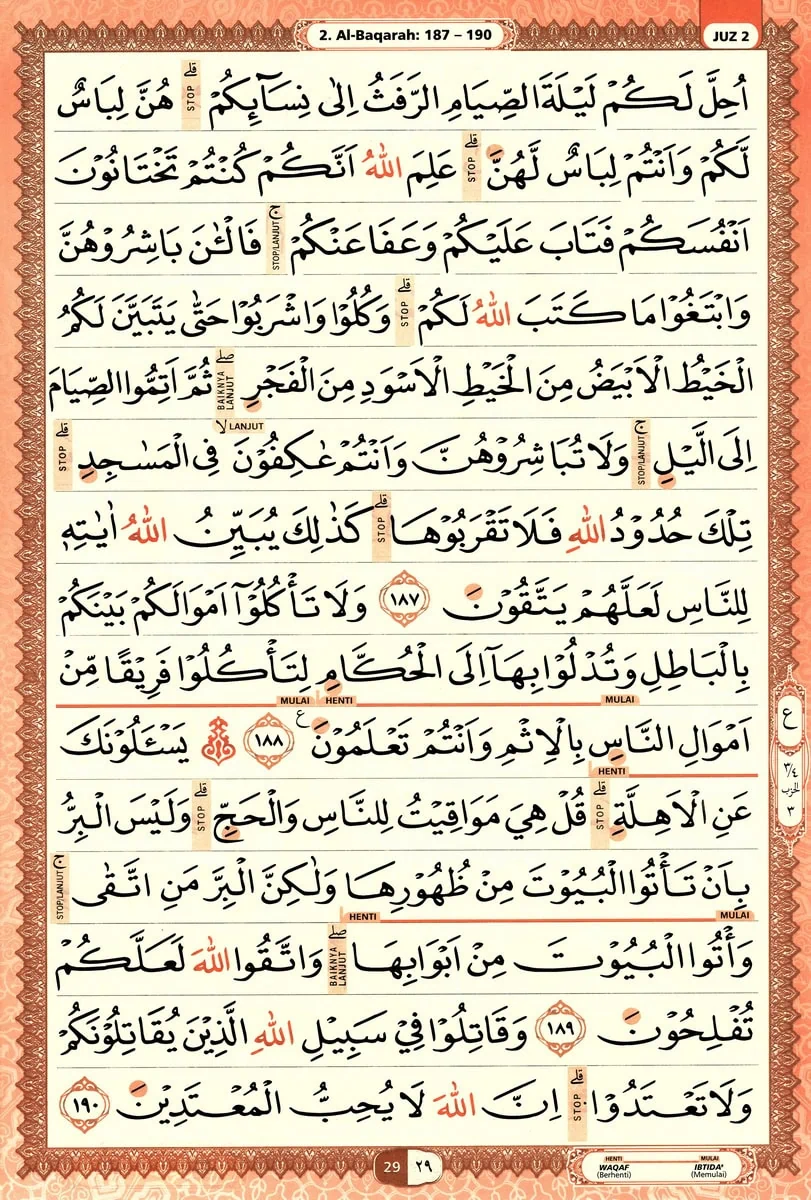 2. Al-Baqarah: 187 – 190
JUZ 2
اُحِلَّ لَكُمْ لَيْلَةَ الصِّيَامِ الرَّفَثُ اِلٰى نِسَاۤىِٕكُمْ ۗ STOP هُنَّ لِبَاسٌ
لَّكُمْ وَاَنْتُمْ لِبَاسٌ لَّهُنَّ ۗ STOP عَلِمَ اللّٰهُ اَنَّكُمْ كُنْتُمْ تَخْتَانُوْنَ
اَنْفُسَكُمْ فَتَابَ عَلَيْكُمْ وَعَفَا عَنْكُمْ ۚ STOP/LANJUT فَالْـٰٔنَ بَاشِرُوْهُنَّ
وَابْتَغُوْا مَا كَتَبَ اللّٰهُ لَكُمْ ۗ STOP وَكُلُوْا وَاشْرَبُوْا حَتّٰى يَتَبَيَّنَ لَكُمُ
الْخَيْطُ الْاَبْيَضُ مِنَ الْخَيْطِ الْاَسْوَدِ مِنَ الْفَجْرِ ۖ BAIKNYA LANJUT ثُمَّ اَتِمُّوا الصِّيَامَ
اِلَى الَّيْلِ ۚ STOP/LANJUT وَلَا تُبَاشِرُوْهُنَّ وَاَنْتُمْ عٰكِفُوْنَ ۙ LANJUT فِى الْمَسٰجِدِ ۗ STOP
تِلْكَ حُدُوْدُ اللّٰهِ فَلَا تَقْرَبُوْهَا ۗ STOP كَذٰلِكَ يُبَيِّنُ اللّٰهُ اٰيٰتِهٖ
لِلنَّاسِ لَعَلَّهُمْ يَتَّقُوْنَ ١٨٧ وَلَا تَأْكُلُوْٓا اَمْوَالَكُمْ بَيْنَكُمْ
بِالْبَاطِلِ وَتُدْلُوْا بِهَآ اِلَى الْحُكَّامِ لِتَأْكُلُوْا فَرِيْقًا مِّنْ
MULAI HENTI MULAI
اَمْوَالِ النَّاسِ بِالْاِثْمِ وَاَنْتُمْ تَعْلَمُوْنَ ع ١٨٨ يَسْـَٔلُوْنَكَ
HENTI
عَنِ الْاَهِلَّةِ ۗ STOP قُلْ هِيَ مَوَاقِيْتُ لِلنَّاسِ وَالْحَجِّ ۗ STOP وَلَيْسَ الْبِرُّ
بِاَنْ تَأْتُوا الْبُيُوْتَ مِنْ ظُهُوْرِهَا وَلٰكِنَّ الْبِرَّ مَنِ اتَّقٰى ۚ STOP/LANJUT
HENTI MULAI
وَأْتُوا الْبُيُوْتَ مِنْ اَبْوَابِهَا ۖ BAIKNYA LANJUT وَاتَّقُوا اللّٰهَ لَعَلَّكُمْ
تُفْلِحُوْنَ ١٨٩ وَقَاتِلُوْا فِيْ سَبِيْلِ اللّٰهِ الَّذِيْنَ يُقَاتِلُوْنَكُمْ
وَلَا تَعْتَدُوْا ۗ STOP اِنَّ اللّٰهَ لَا يُحِبُّ الْمُعْتَدِيْنَ ١٩٠
ع
٣/٤
الحزب
٣
29 ٢٩
HENTI MULAI
WAQAF IBTIDA'
(Berhenti) (Memulai)